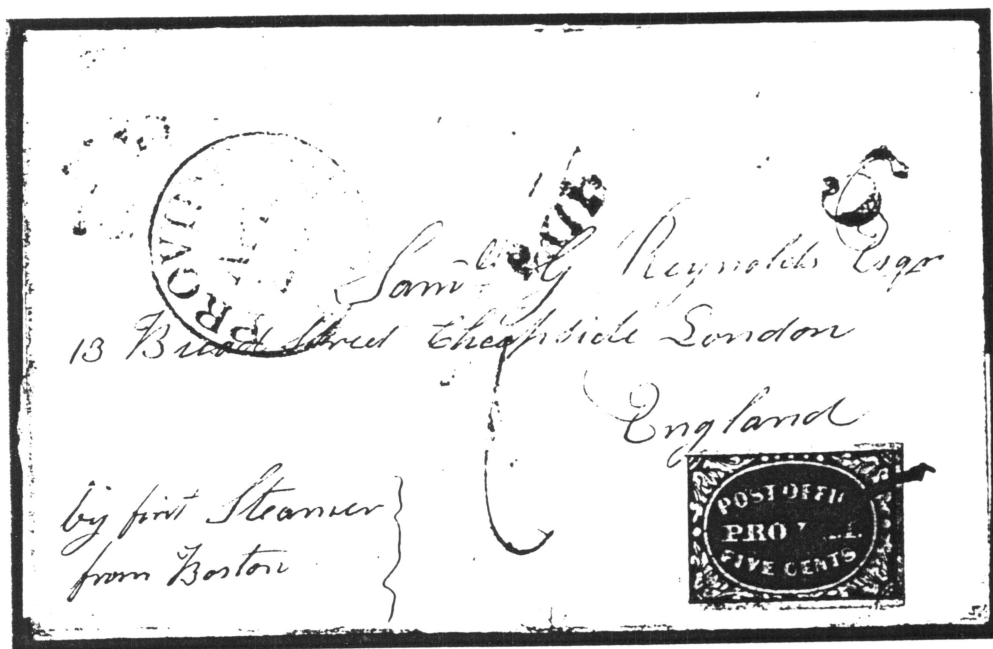 PROVID
FIVE
5
Saml G Reynolds Esqr
13 Broad Street Cheapside London
England
by first Steamer
from Boston
POST OFFI
PRO
FIVE CENTS